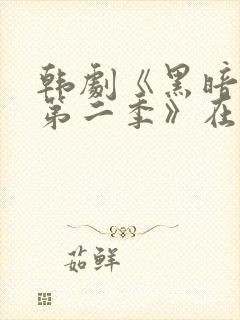 韩劇《黑暗
第二季》在
茹鲜